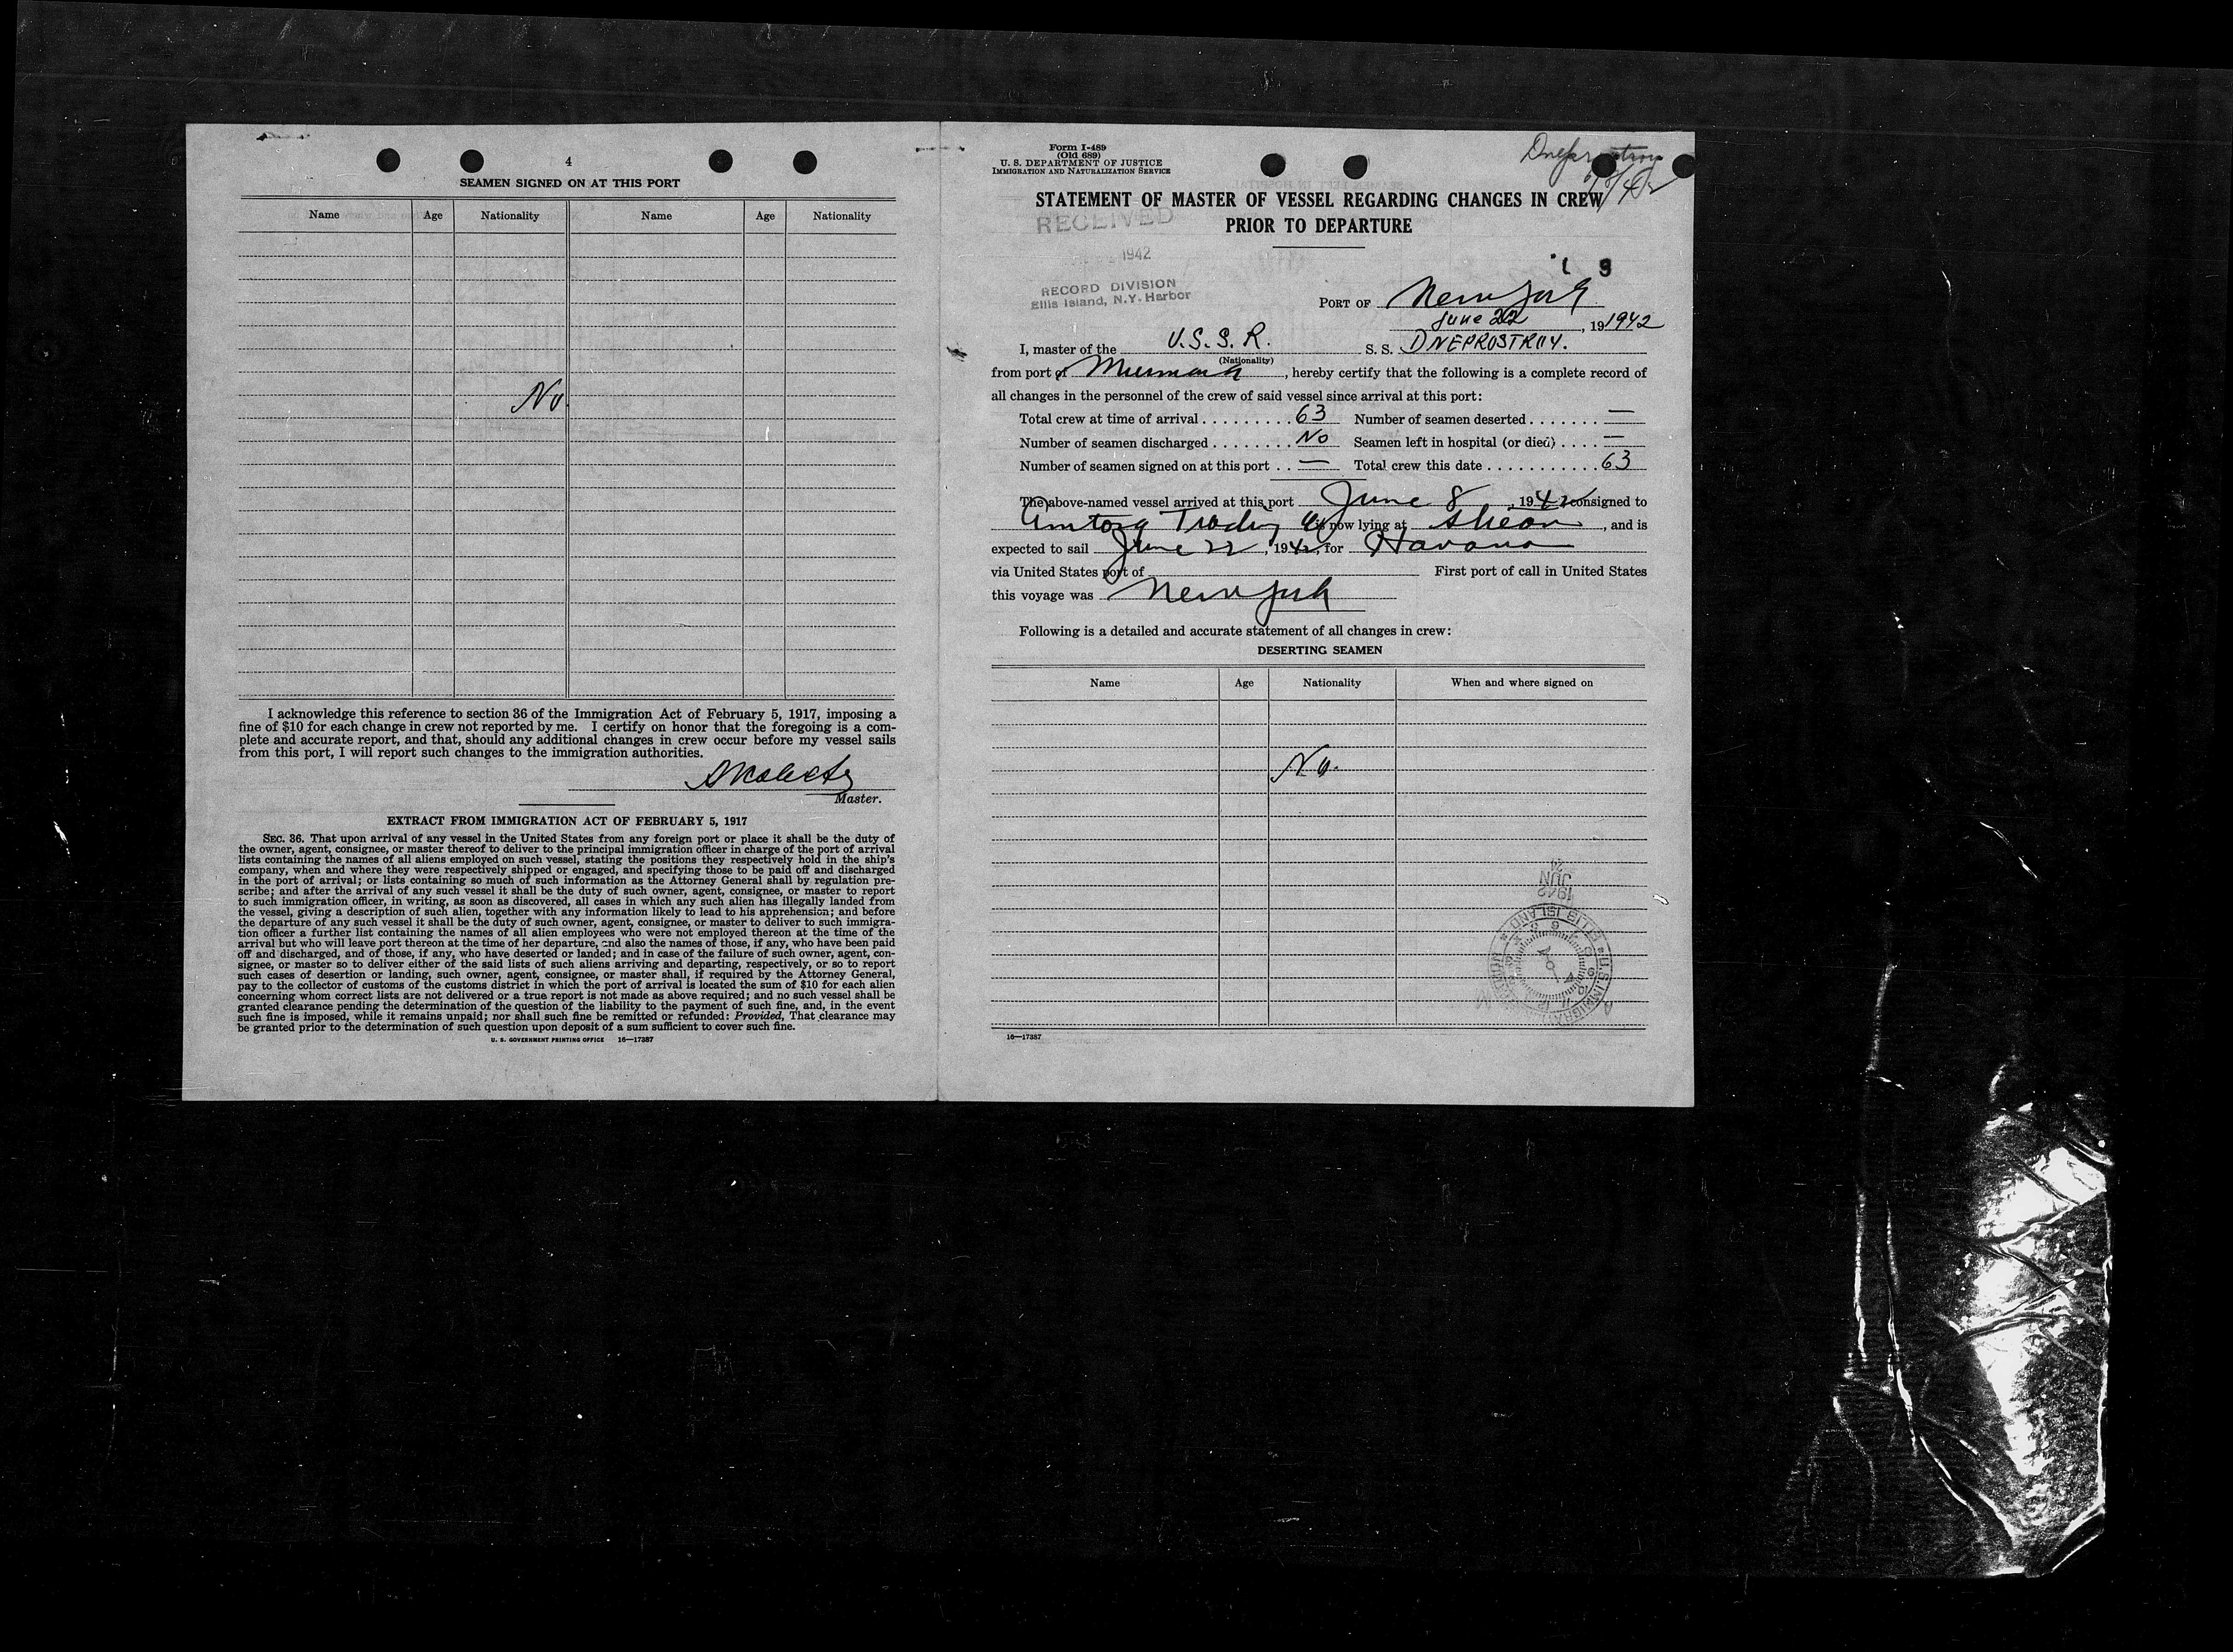 4
SEAMEN SIGNED ON AT THIS PORT
Name Age Nationality Name Age Nationality
No.
I acknowledge this reference to section 36 of the Immigration Act of February 5, 1917, imposing a
fine of $10 for each change in crew not reported by me. I certify on honor that the foregoing is a com-
plete and accurate report, and that, should any additional changes in crew occur before my vessel sails
from this port, I will report such changes to the immigration authorities.
Master.
EXTRACT FROM IMMIGRATION ACT OF FEBRUARY 5, 1917
SEC. 36. That upon arrival of any vessel in the United States from any foreign port or place it shall be the duty of
the owner, agent, consignee, or master thereof to deliver to the principal immigration officer in charge of the port of arrival
lists containing the names of all aliens employed on such vessel, stating the positions they respectively hold in the ship's
company, when and where they were respectively shipped or engaged, and specifying those to be paid off and discharged
in the port of arrival; or lists containing so much of such information as the Attorney General shall by regulation pre-
scribe; and after the arrival of any such vessel it shall be the duty of such owner, agent, consignee, or master to report
to such immigration officer, in writing, as soon as discovered, all cases in which any such alien has illegally landed from
the vessel, giving a description of such alien, together with any information likely to lead to his apprehension; and before
the departure of any such vessel it shall be the duty of such owner, agent, consignee, or master to deliver to such immigra-
tion officer a further list containing the names of all alien employees who were not employed thereon at the time of the
arrival but who will leave port thereon at the time of her departure, and also the names of those, if any, who have been paid
off and discharged, and of those, if any, who have deserted or landed; and in case of the failure of such owner, agent, con-
signee, or master so to deliver either of the said lists of such aliens arriving and departing, respectively, or so to report
such cases of desertion or landing, such owner, agent, consignee, or master shall, if required by the Attorney General,
pay to the collector of customs of the customs district in which the port of arrival is located the sum of $10 for each alien
concerning whom correct lists are not delivered or a true report is not made as above required; and no such vessel shall be
granted clearance pending the determination of the question of the liability to the payment of such fine, and, in the event
such fine is imposed, while it remains unpaid; nor shall such fine be remitted or refunded: Provided, That clearance may
be granted prior to the determination of such question upon deposit of a sum sufficient to cover such fine.
U. S. GOVERNMENT PRINTING OFFICE 16—17387
Form I-489
(Old 689)
U. S. DEPARTMENT OF JUSTICE
IMMIGRATION AND NATURALIZATION SERVICE
6/8/42
STATEMENT OF MASTER OF VESSEL REGARDING CHANGES IN CREW
PRIOR TO DEPARTURE
RECEIVED
1942
RECORD DIVISION
Ellis Island, N.Y. Harbor
PORT OF New York
June 22, 19 1942
I, master of the U.S.S.R. S. S. DNEPROSTROY.
(Nationality)
from port of Murmansk, hereby certify that the following is a complete record of
all changes in the personnel of the crew of said vessel since arrival at this port:
Total crew at time of arrival 63 Number of seamen deserted —
Number of seamen discharged No Seamen left in hospital (or died) —
Number of seamen signed on at this port — Total crew this date 63
The above-named vessel arrived at this port June 8, 1942 consigned to
Amtorg Trading Co is now lying at , and is
expected to sail June 22, 1942, for Havana
via United States port of First port of call in United States
this voyage was New York
Following is a detailed and accurate statement of all changes in crew:
DESERTING SEAMEN
Name Age Nationality When and where signed on
No.
JUN
1942
U.S. IMMIGRATION
ELLIS ISLAND
16—17387